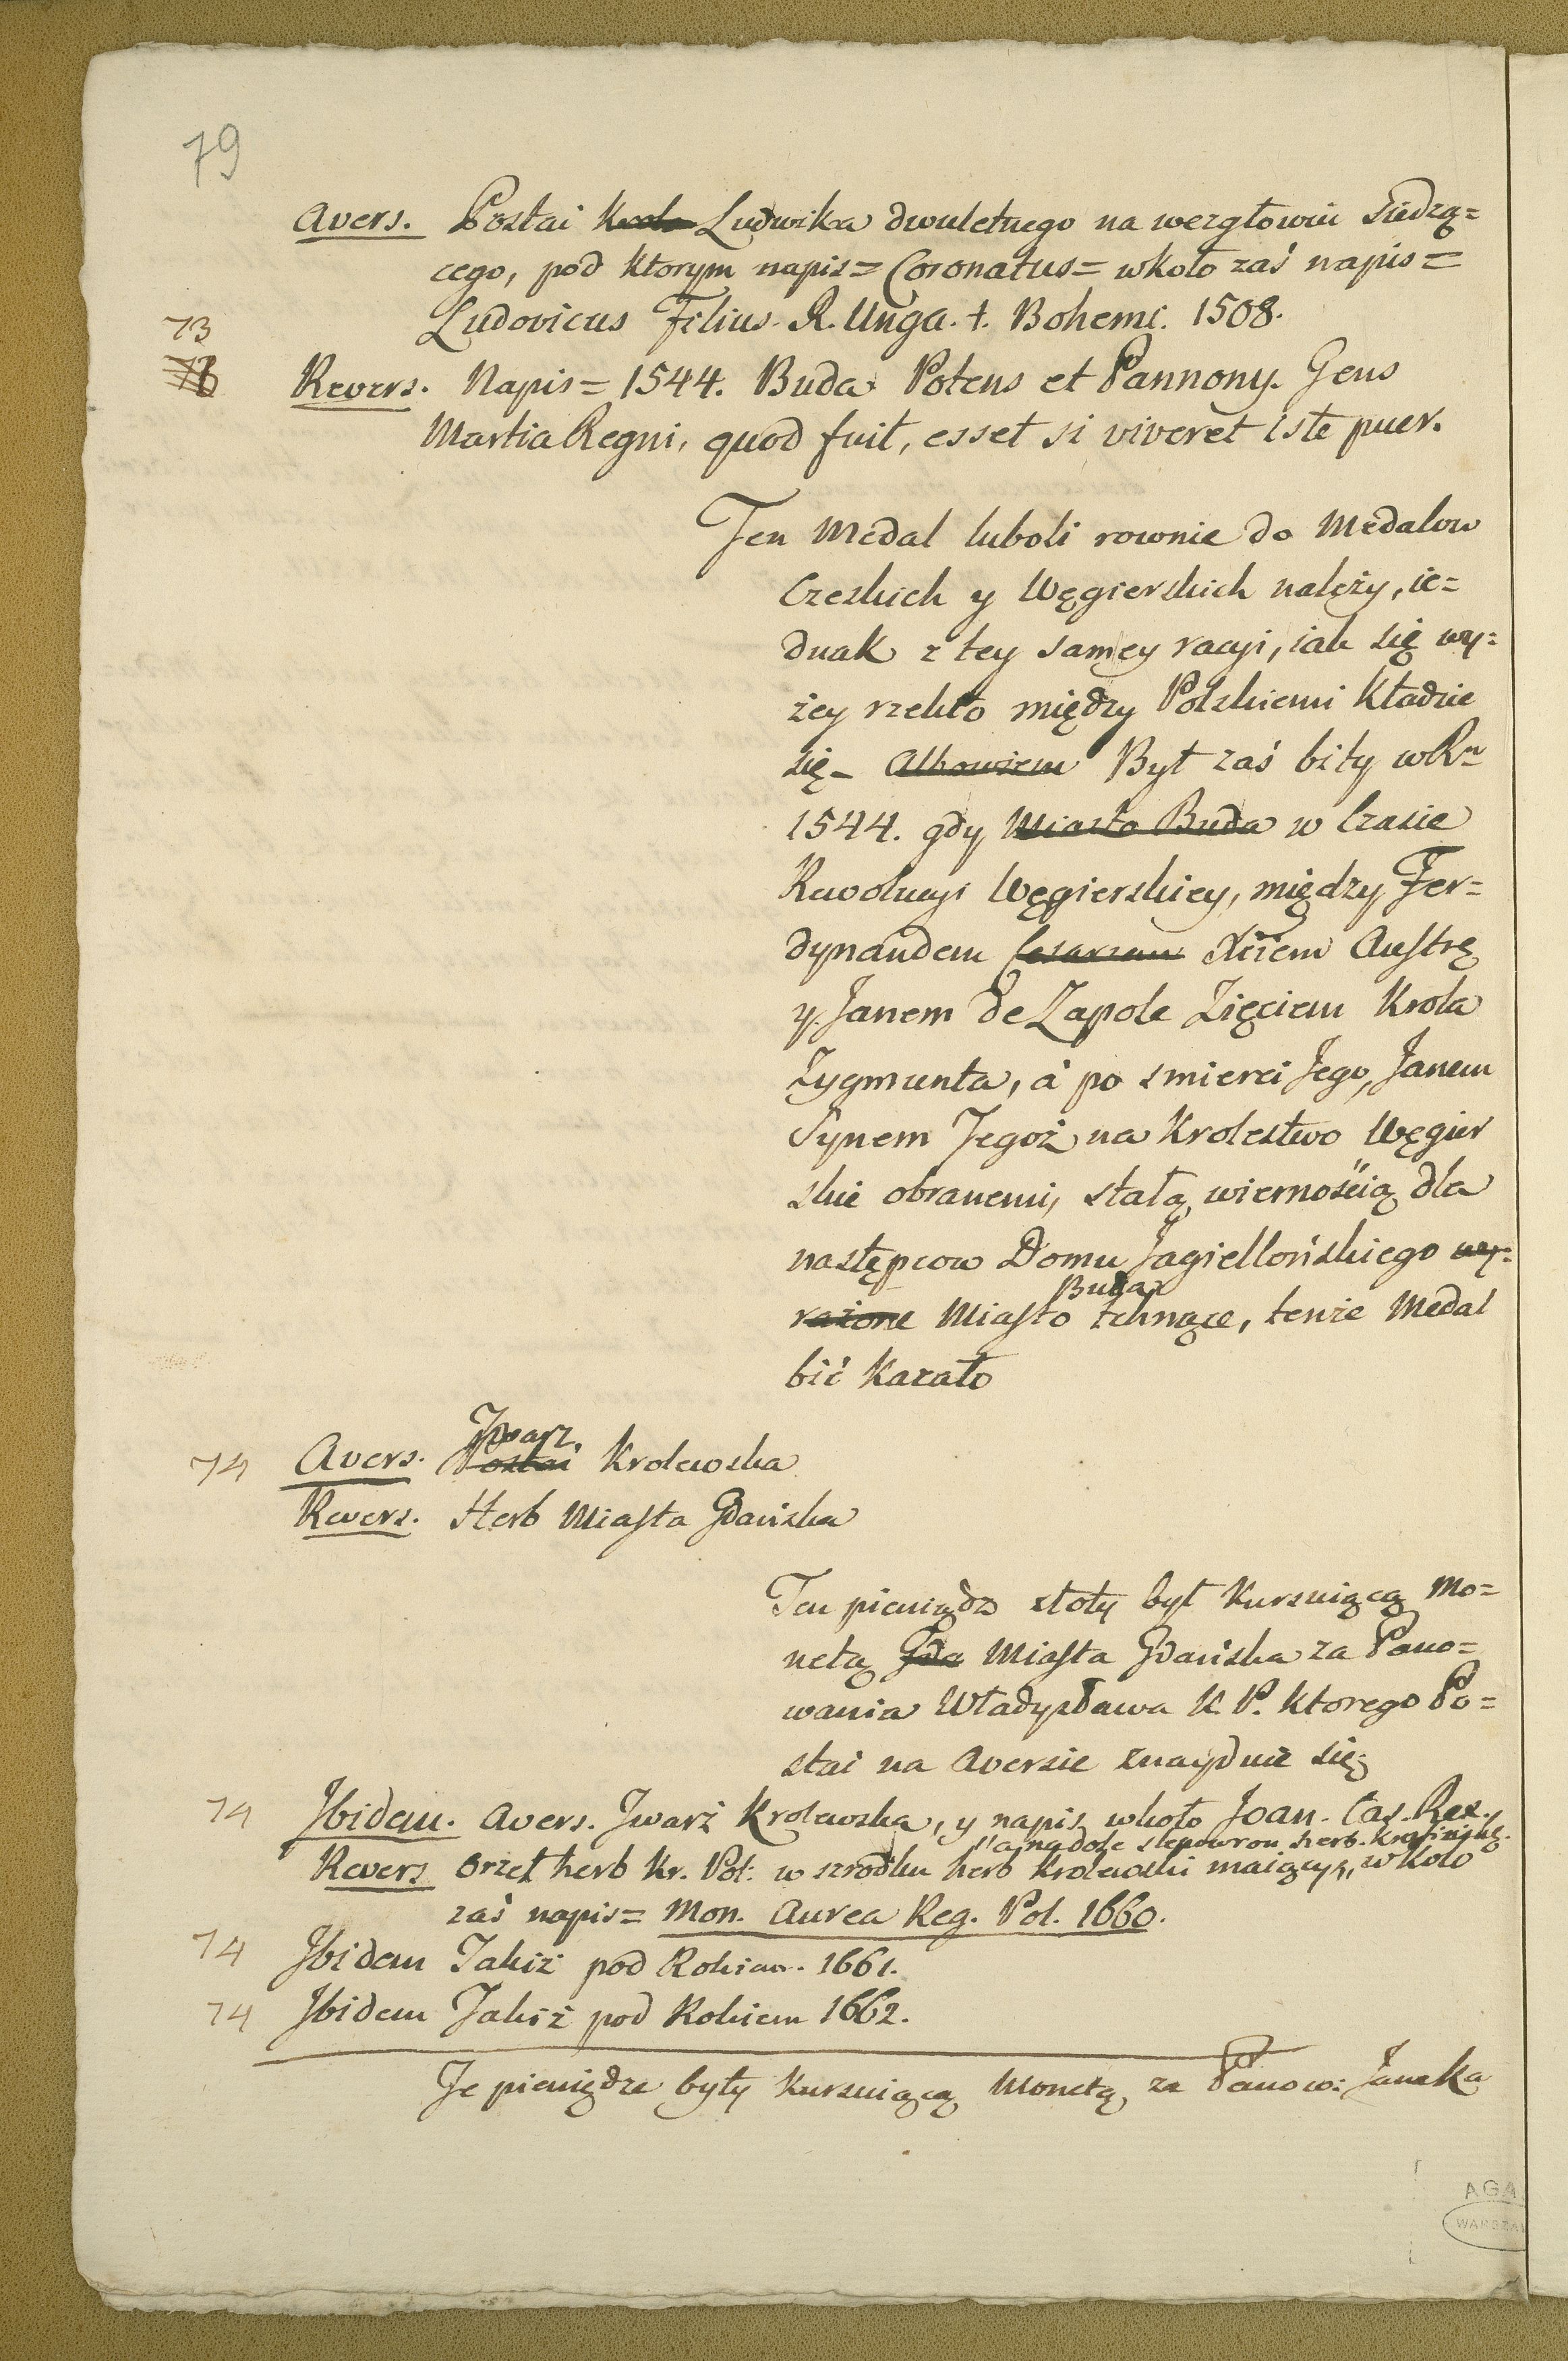 79
Avers. Postai Krola Ludwika dwuletnego na wezgłowiu siedzą=
cego, pod ktorym napis= Coronatus= wkoło zaś napis=
Ludovicus Filius R. Unga. t. Bohemi. 1508.
73
Revers. Napis= 1544. Buda Potens et Pannony. Gens
Martia Regni, quod fuit, esset si viveret iste puer.
Ten Medal luboli rownie do Medalow
Czeskich y Węgierskich należy, ie=
dnak z tey samey racyi, iak się wy=
żey rzekło między Polskiemi kładzie
się_ Albowiem Był zaś bity w Ru
1544. gdy Miasto Buda w Czasie
Rewolucyi Węgierskiey, między Fer=
dynandem Cesarzem Xciem Austrę
y Janem de Zapola Zięciem Krola
Zygmunta, á po smierci Jego, Janem
Synem Jegoż na Krolestwo Węgier
skie obranemi, stałą wiernością dla
następcow Domu Jagiellońskiego wy=
rażone Miasto Buda tchnące, tenże Medal
bić kazało
74 Avers. Postai Twarz Krolewska
Revers. Herb Miasta Gdańska
Ten pieniądz złoty był kursuiącą Mo=
netą Gda Miasta Gdańska za Pano=
wania Władysława K. P. ktorego Po=
stai na Aversie znayduie się
74 Ibidem. Avers. Twarz Krolewska, y napis wkoło Joan. Cas. Rex.
"a na dole slepowron herb. Krasińskę.
Revers Orzeł herb Kr. Pol: w szrodku herb krolewski maiący, "wkoło
zaś napis= Mon. Aurea Reg. Pol. 1660.
74 Ibidem Takiż pod Rokiem. 1661.
74 Ibidem Takiż pod Rokiem 1662.
Te pieniądze były kursuiącą Monetą za Panow: Jana Ka
AGA
WARSZAW